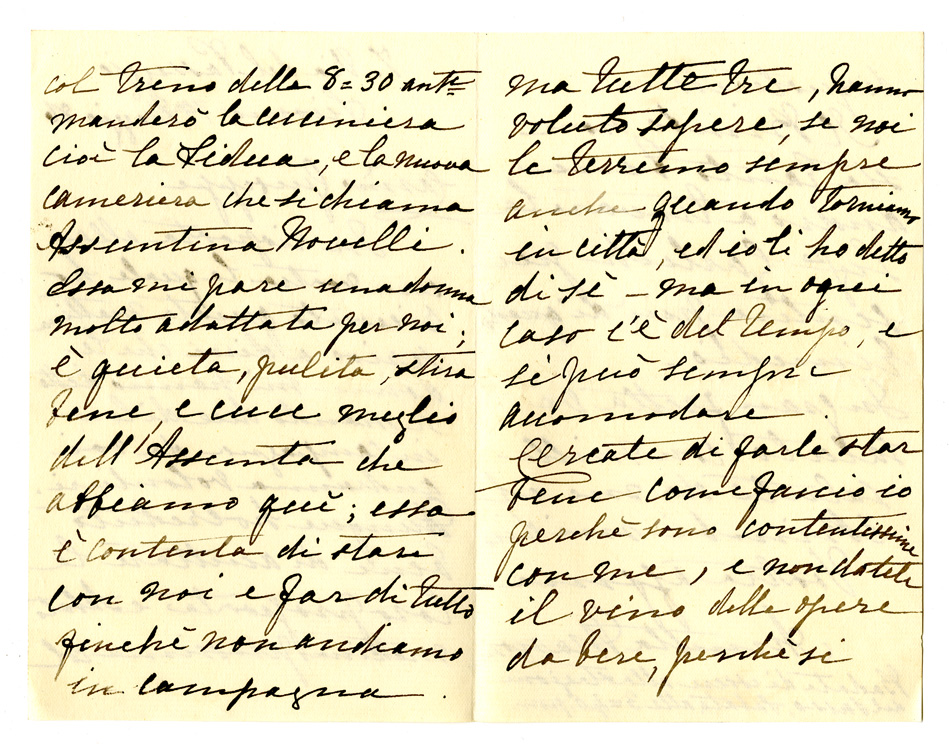 col treno delle 8=30 antne
manderò la cuciniera
cioè la Lidua, e la nuova
cameriera che si chiama
Assuntina Novelli.
Essa mi pare una donna
molto adattata per noi;
è quieta, pulita, stira
bene, e cuce meglio
dell'Assunta che
abbiamo quì; essa
è contenta di stare
con noi e far di tutto
finchè non andiamo
in campagna.
ma tutte tre, hanno
voluto sapere, se noi
le terremo sempre
anche quando torniamo
in città, ed io li ho detto
di sè - ma in ogni
caso c'è del tempo, e
si può sempre
accomodare.
Cercate di farle star
bene come faccio io
perchè sono contentissime
con me, e non datele
il vino delle opere
da bere, perchè si